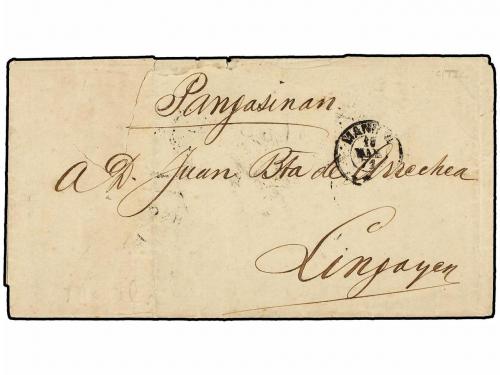 Pangasinan.
MANILA
16
MAY
A D. Juan Bta de Urrechea
Lingayen